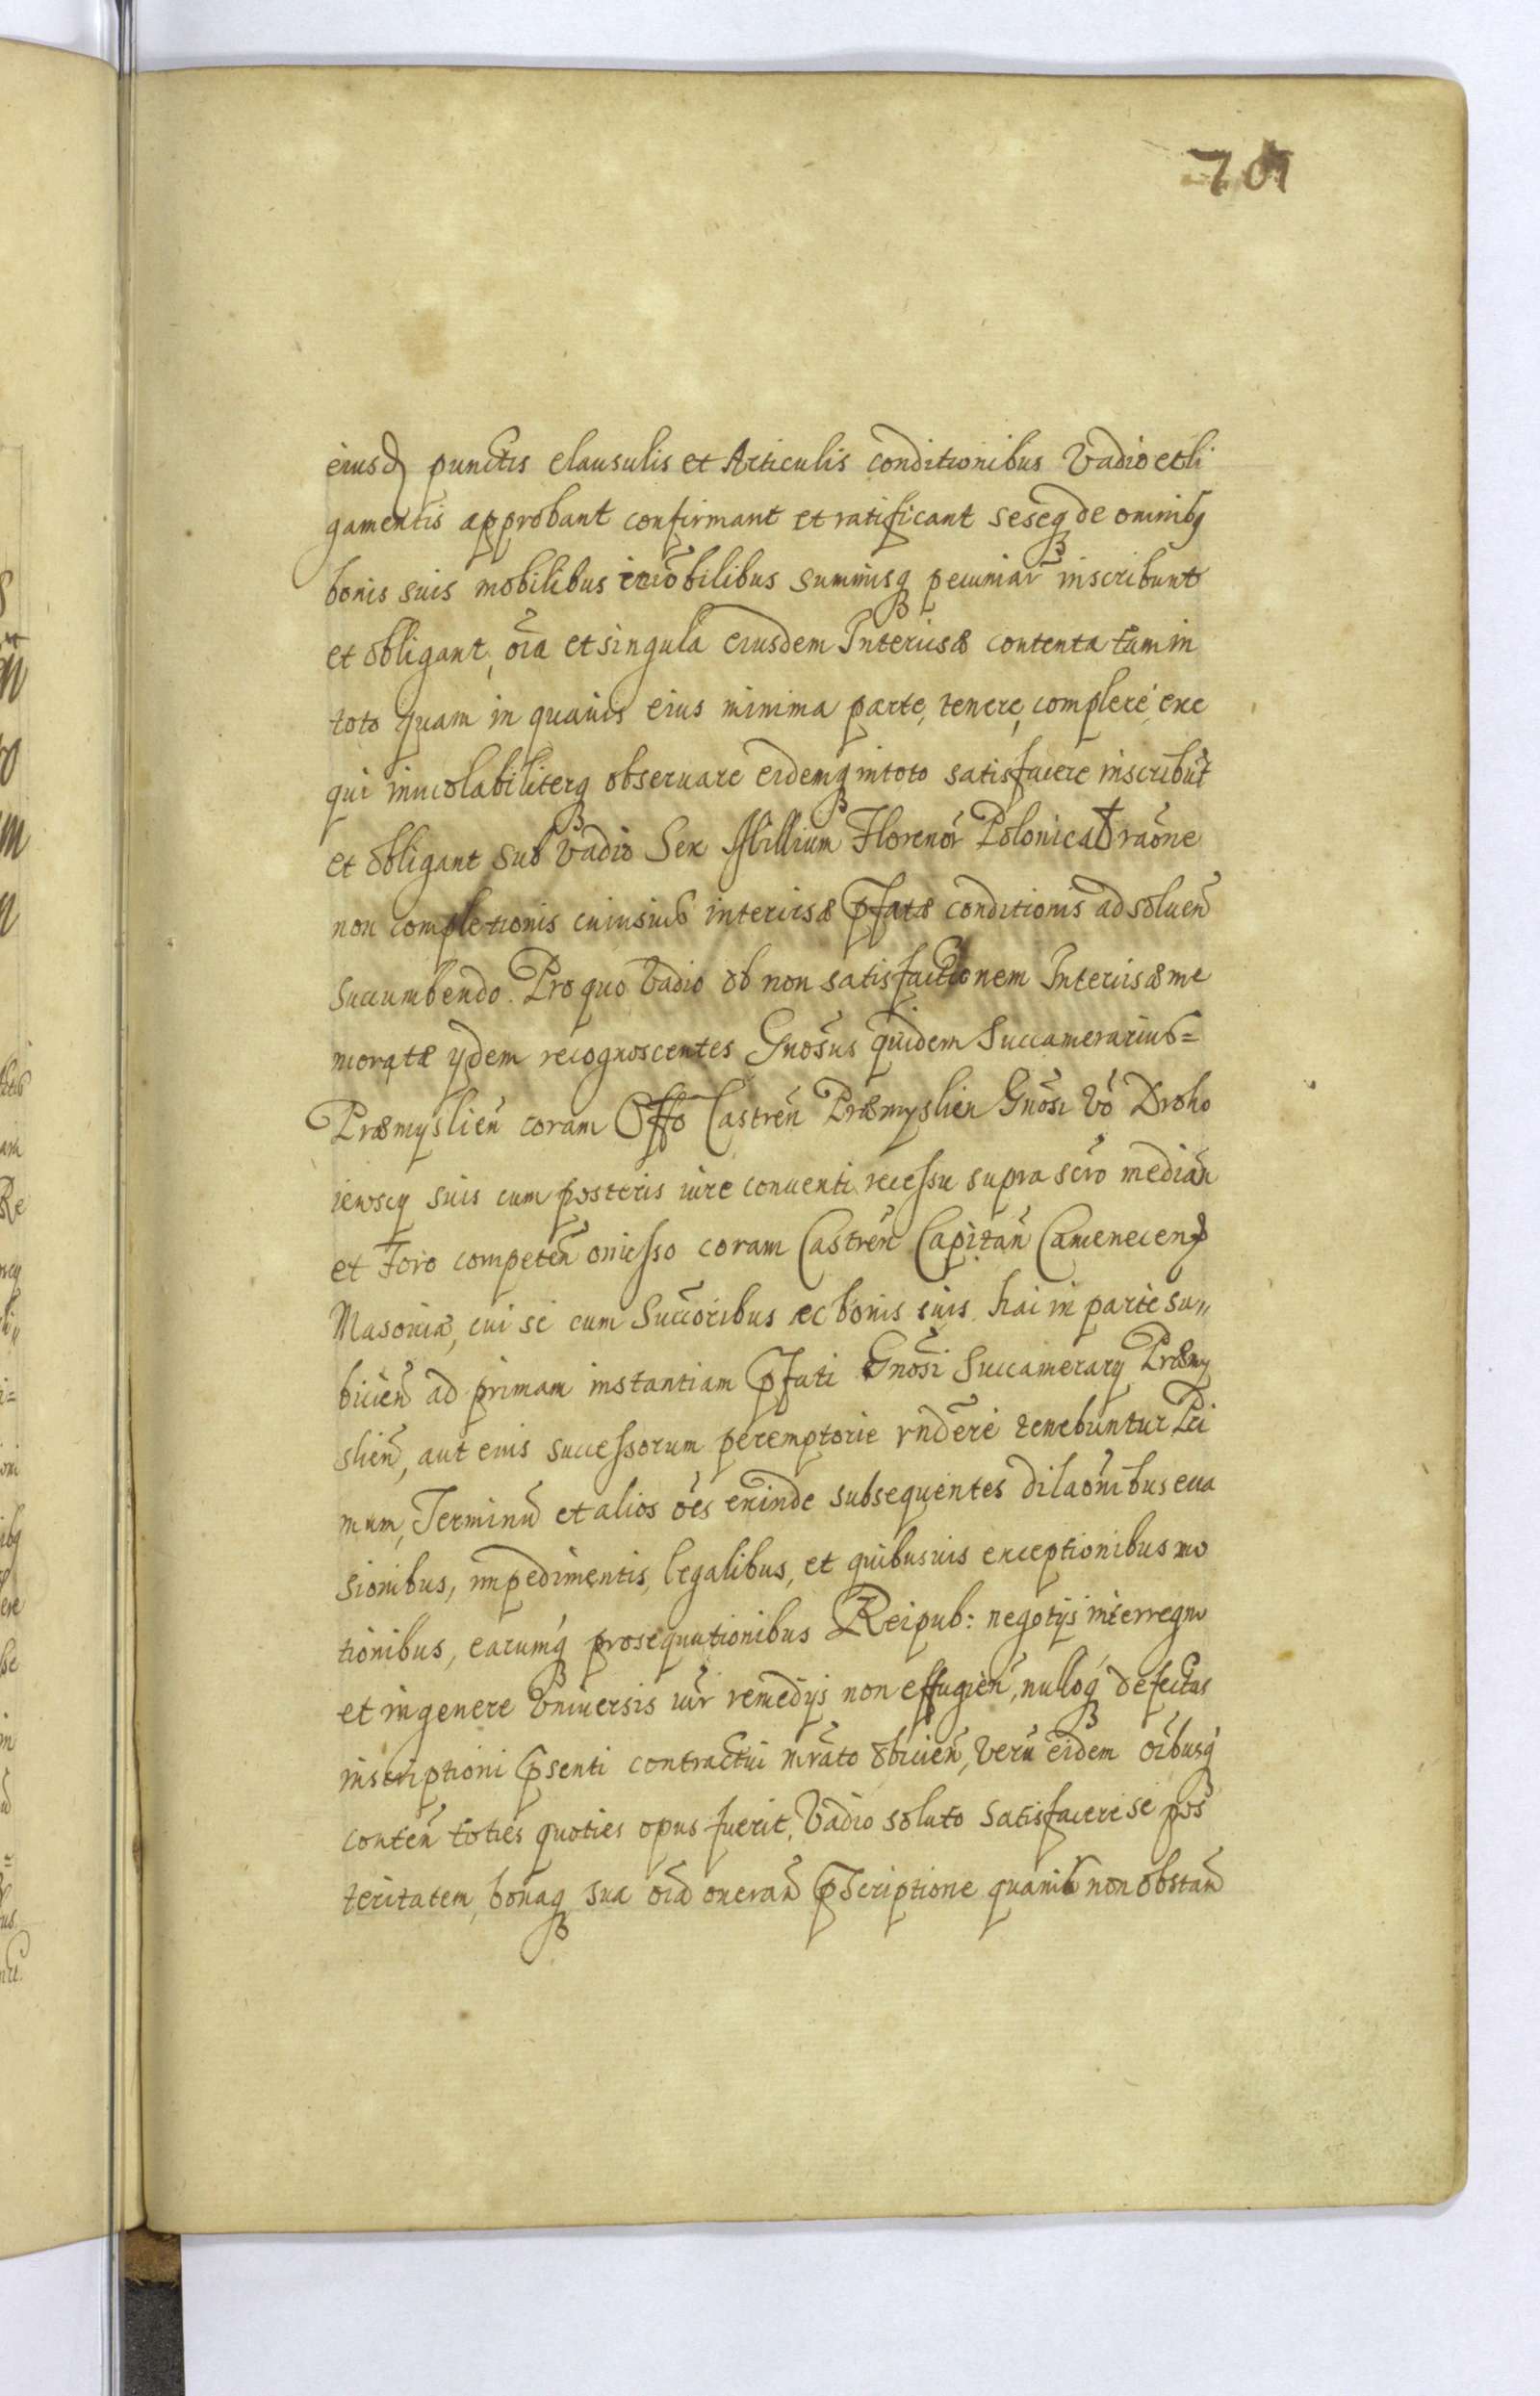 701
eiusd punctis clausulis et Articulis conditionibus Vadio et li
gamentis approbant confirmant et ratificant seseq de omnibq
bonis suis mobilibus imobilibus summisq pecuniar inscribunt
et obligant, oia et singula eiusdem Intercisæ contenta tam in
toto quam in quauis eius minima parte, tenere, complere, exe
qui inuiolabiliterq obseruare eidemq in toto satisfacere inscribut
et obligant sub Vadio Sex Millium Florenor Polonical raone
non completionis cuiusuis intercisæ pfatæ conditionis ad soluen
succumbendo. Pro quo Vadio ob non satisfactionem Intercisæ me
moratæ ydem recognoscentes Gnosus quidem Succamerarius=
Præmyslien coram Offo Castren Præmyslien Gnosi Vo Droho
iewscy suis cum posteris iure conuenti recessu supra scro median
et Foro competen omesso coram Castren Capitan Camenecen
Masouia, cui se cum Succoribus ac bonis suis hac in parte su"
biicien ad primam instantiam pfati Gnosi Succamerary Præmy
slien, aut eius successorum peremptorie rndere tenebuntur Pri
mum, Terminu et alios oes exinde subsequentes dilaonibus eua
sionibus, impedimentis, legalibus, et quibusuis exceptionibus mo
tionibus, earumq prosequutionibus Reipub: negotijs interregno
et in genere Vniuersis iur remedijs non effugien, nulloq defectus
inscriptioni psenti contractui mrato obiicien, Veru eidem oibusq
conten toties quoties opus fuerit, Vadio soluto satisfacere se pos
teritatem, bonaq sua oia oneran pscriptione quauis non obstan